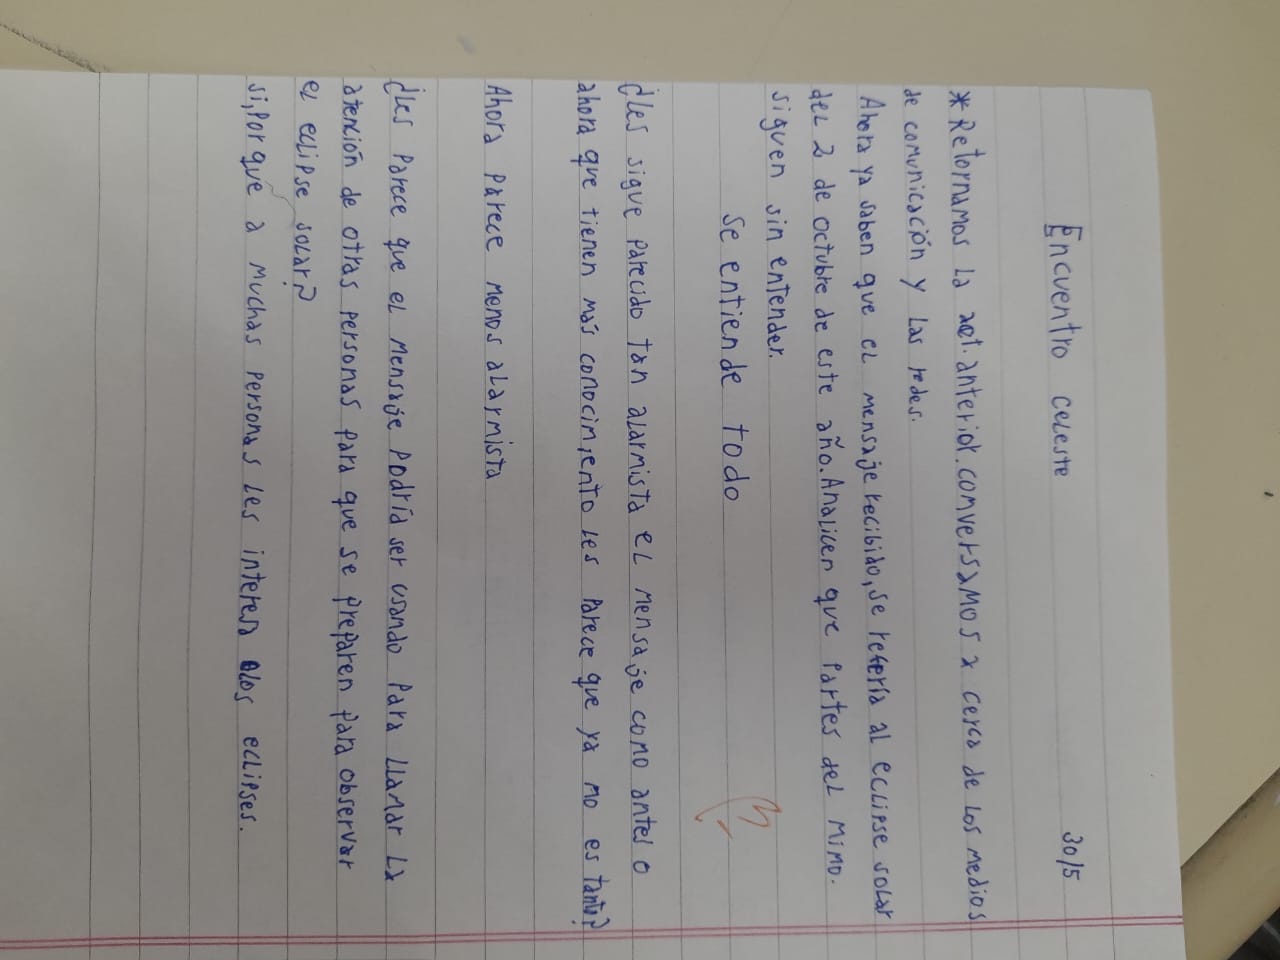 Encuentro celeste 30/5
*Retornamos la act. anterior. comversamos a cerca de los medios
de comunicación y las redes.
Ahora ya saben que el mensaje recibido, se refería al eclipse solar
del 2 de octubre de este año. Analicen que partes del mimo.
siguen sin entender.
Se entiende todo
¿Les sigue parecido tan alarmista el mensaje como antes o
ahora que tienen más conocimiento les parece que ya mo es tanto?
Ahora parece menos alarmista
¿Les parece que el mensaje podría ser usando para llamar la
atención de otras personas para que se preparen para observar
el eclipse solar?
si, porque a muchas personas les interesa los eclipses.